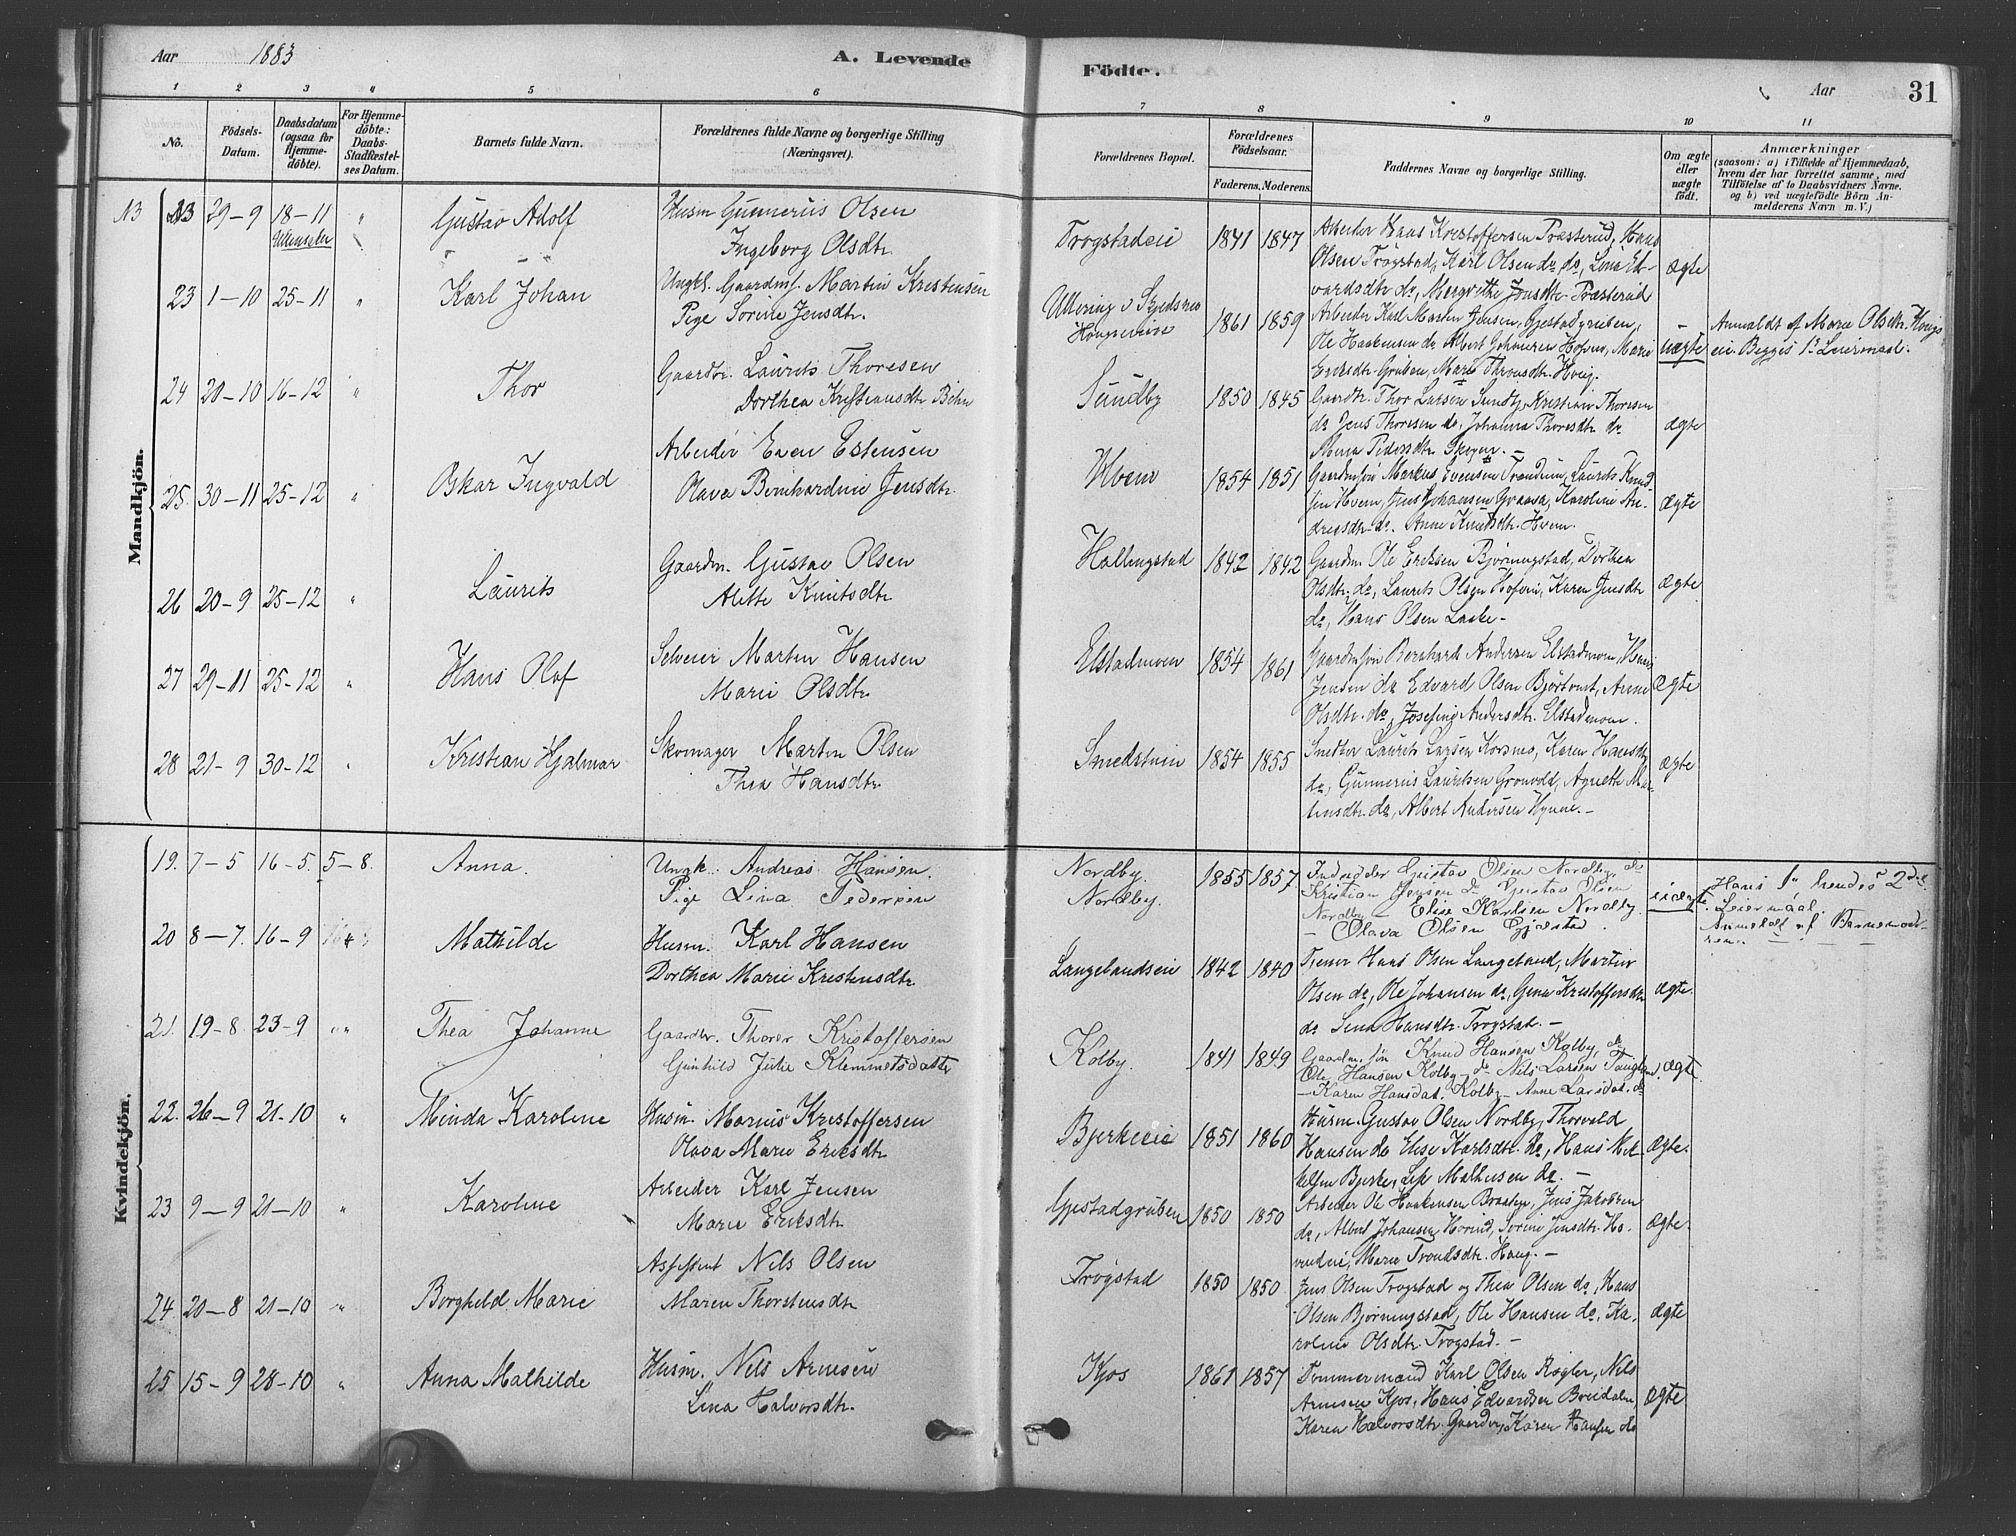 Aar 1883
A. Levende
Födte.
Aar
31
1 2 3 4 5 6 7 8 9 10 11
No.
Födsels-
Datum.
Daabsdatum
(ogsaa for
Hjemme-
döbte).
For Hjemme-
döbte:
Daabs-
Stadfæstel-
ses Datum.
Barnets fulde Navn.
Forældrenes fulde Navne og borgerlige Stilling
(Næringsvei).
Forældrenes Bopæl.
Forældrenes
Födselsaar.
Faderens. Moderens.
Faddernes Navne og borgerlige Stilling.
Om ægte
eller
uægte
födt.
Anmærkninger
(saasom: a) i Tilfælde af Hjemmedaab,
hvem der har forrettet samme, med
Tilföielse af to Daabsvidners Navne.
og b) ved uægtefödte Börn An-
melderens Navn m. V.)
Mandkjön.
N3 23 29-9 18-11 " Gustav Adolf
Husm Gunnerius Olsen
Ingeborg Olsdtr.
Trogstadeie 1841 1847
Arbeider Hans Kristoffersen Træsterud, Hans
Olsen Trøgstad, Karl Olsen do do, Lina Ed-
vardsdtr do, Mergrethe Jensdtr Træsterud
ægte
23 1-10 25-11 " Karl Johan
Ungk. Gaardmf. Martin Kristensen
Pige Sorine Jensdtr.
1861 1859
Arbeider Karl Martin Jensen, Gjestadgruben,
Ole Haakensen do Albert Johansen Hofvin, Marie
Eriksdtr Gruben, Marie Throndsdtr. Hvig.
uægte
Anmeldt af Marie Olsdtr. Hvigs
eie. Begges 1ste Leiermaal.
24 20-10 16-12 " Thor
Gaardbr. Laurits Thoresen
Dorthea Kristiansdtr Bihn
Sundby 1850 1845
Gaardbr. Thor Larsen Sundby, Kristian Thoresen
do Jens Thoresen do, Johanna Thoresdtr do
Maria Pedersdtr. Skogen. -
ægte
25. 30-11 25-12 " Oskar Ingvald
Arbeider Even Estensen
Olava Bernhardine Jensdtr.
Hvem 1854 1851
Gaardmsøn Markus Evensen Trandum, Laurits Knud-
sen Hvem, Jens Johansen Graava, Karoline An-
dreasdtr do. Anne Knudsdtr. Hvem.
ægte
26 20-9 25-12 " Laurits
Gaardm. Gustav Olsen
Alette Knutsdtr
Hallingstad 1842 1842
Gaardm Ole Eriksen Bjørningstad, Dorthea
Olsdtr. do, Laurits Olsen Hofvin, Karen Jensdtr
do, Hans Olsen Laake -
ægte
27 29-11 25-12 " Hans Olaf
Selveier Martin Hansen
Marie Olsdtr.
Elstadmoen 1854 1861
Gaardmsøn Bernhard Andersen Elstadmoen, Hans
Jensen do Edvard Olsen Bjørtomt, Anne
Olsdtr. do, Josefine Andersdtr. Elstadmoen.
ægte
28 21-9 30-12 " Kristian Hjalmar
Skomager Martin Olsen
Thea Hansdtr.
Smedstuen 1854 1855
Smedbr Laurits Larsen Korsmo, Karen Hansdtr
do, Gunnerius Lauritsen Gronvold, Agnethe Mar-
tinsdtr. do, Albert Andersen Hynne. -
ægte
Kvindekjön.
19. 7-5 16-5. 5-8. Anna.
Ungk. Andreas Hansen.
Pige Lina Pedersen
Nordby.
Nordby. 1855 1857
Gustav Olsen Nordby, do
Kristian Jensen do Gustav Olsen
Nordby - Elise Karlsen Nordby
- Olava Olsen Gjæstad.
uægte
Hans 1ste, hendes 2det
Leiermaal.
Anmeldt af Barnemod-
ren.
20 8-7. 16-9 Mathilde
Husm. Karl Hansen
Dorthea Marie Kristensdtr
Langelandseie 1842 1840
Hans Olsen Langeland, Martin
Olsen do, Ole Johansen do, Gina Kristoffersdtr
do Lina Hansdtr. Trogstad. -
ægte.
21. 19-8. 23-9 " Thea Johanne
Gaardbr. Thorer Kristoffersen
Gunhild Julie Klemmetsdatter
Kolby. 1841 1849
Gaardm. søn Knud Hansen Kolby, do
Ole Hansen Kolby - do Nils Larsen
- Karen Hansdat. Kolby - Anne Larsdat. do
ægte.
22. 26-9 21-10 " Minda Karoline
Husm. Marius Kristoffersen
Olava Marie Eriksdtr
Bjerkeeie 1851 1860
Husm. Gustav Olsen Nordby, Thorvald
Hansen do Elise Karlsdtr. do, Hans Mik-
kelsen Bjerke, Lise Mathisen do. -
ægte.
23 9-9 21-10 " Karoline
Arbeider Karl Jensen
Marie Eriksdtr
Gjestadgruben 1850 1850
Arbeider Ole Haakensen Braaten, Jens Jakobsen
do, Albert Johansen Hovind, Sorine Jensdtr. Ho-
vindeie, Marie Trondsdtr. Haug. -
ægte.
24. 20-8 21-10 " Borghild Marie
Assistent Nils Olsen
Maren Thorstensdtr
Trøgstad 1850 1850
Jens Olsen Trogstad og Thea Olsen do, Hans
Olsen Bjørningstad, Ole Hansen do, Ka-
roline Olsdtr. Trogstad. -
ægte
25 15-9 28-10 " Anna Mathilde
Husm. Nils Arnesen
Lina Halvorsdtr.
Kjos 1861 1857
Tommermand Karl Olsen Røgler, Nils
Arnesen Kjos, Hans Edvardsen Breidalen,
Karen Halvorsdtr. Gaarder, Karen Hansen do
ægte